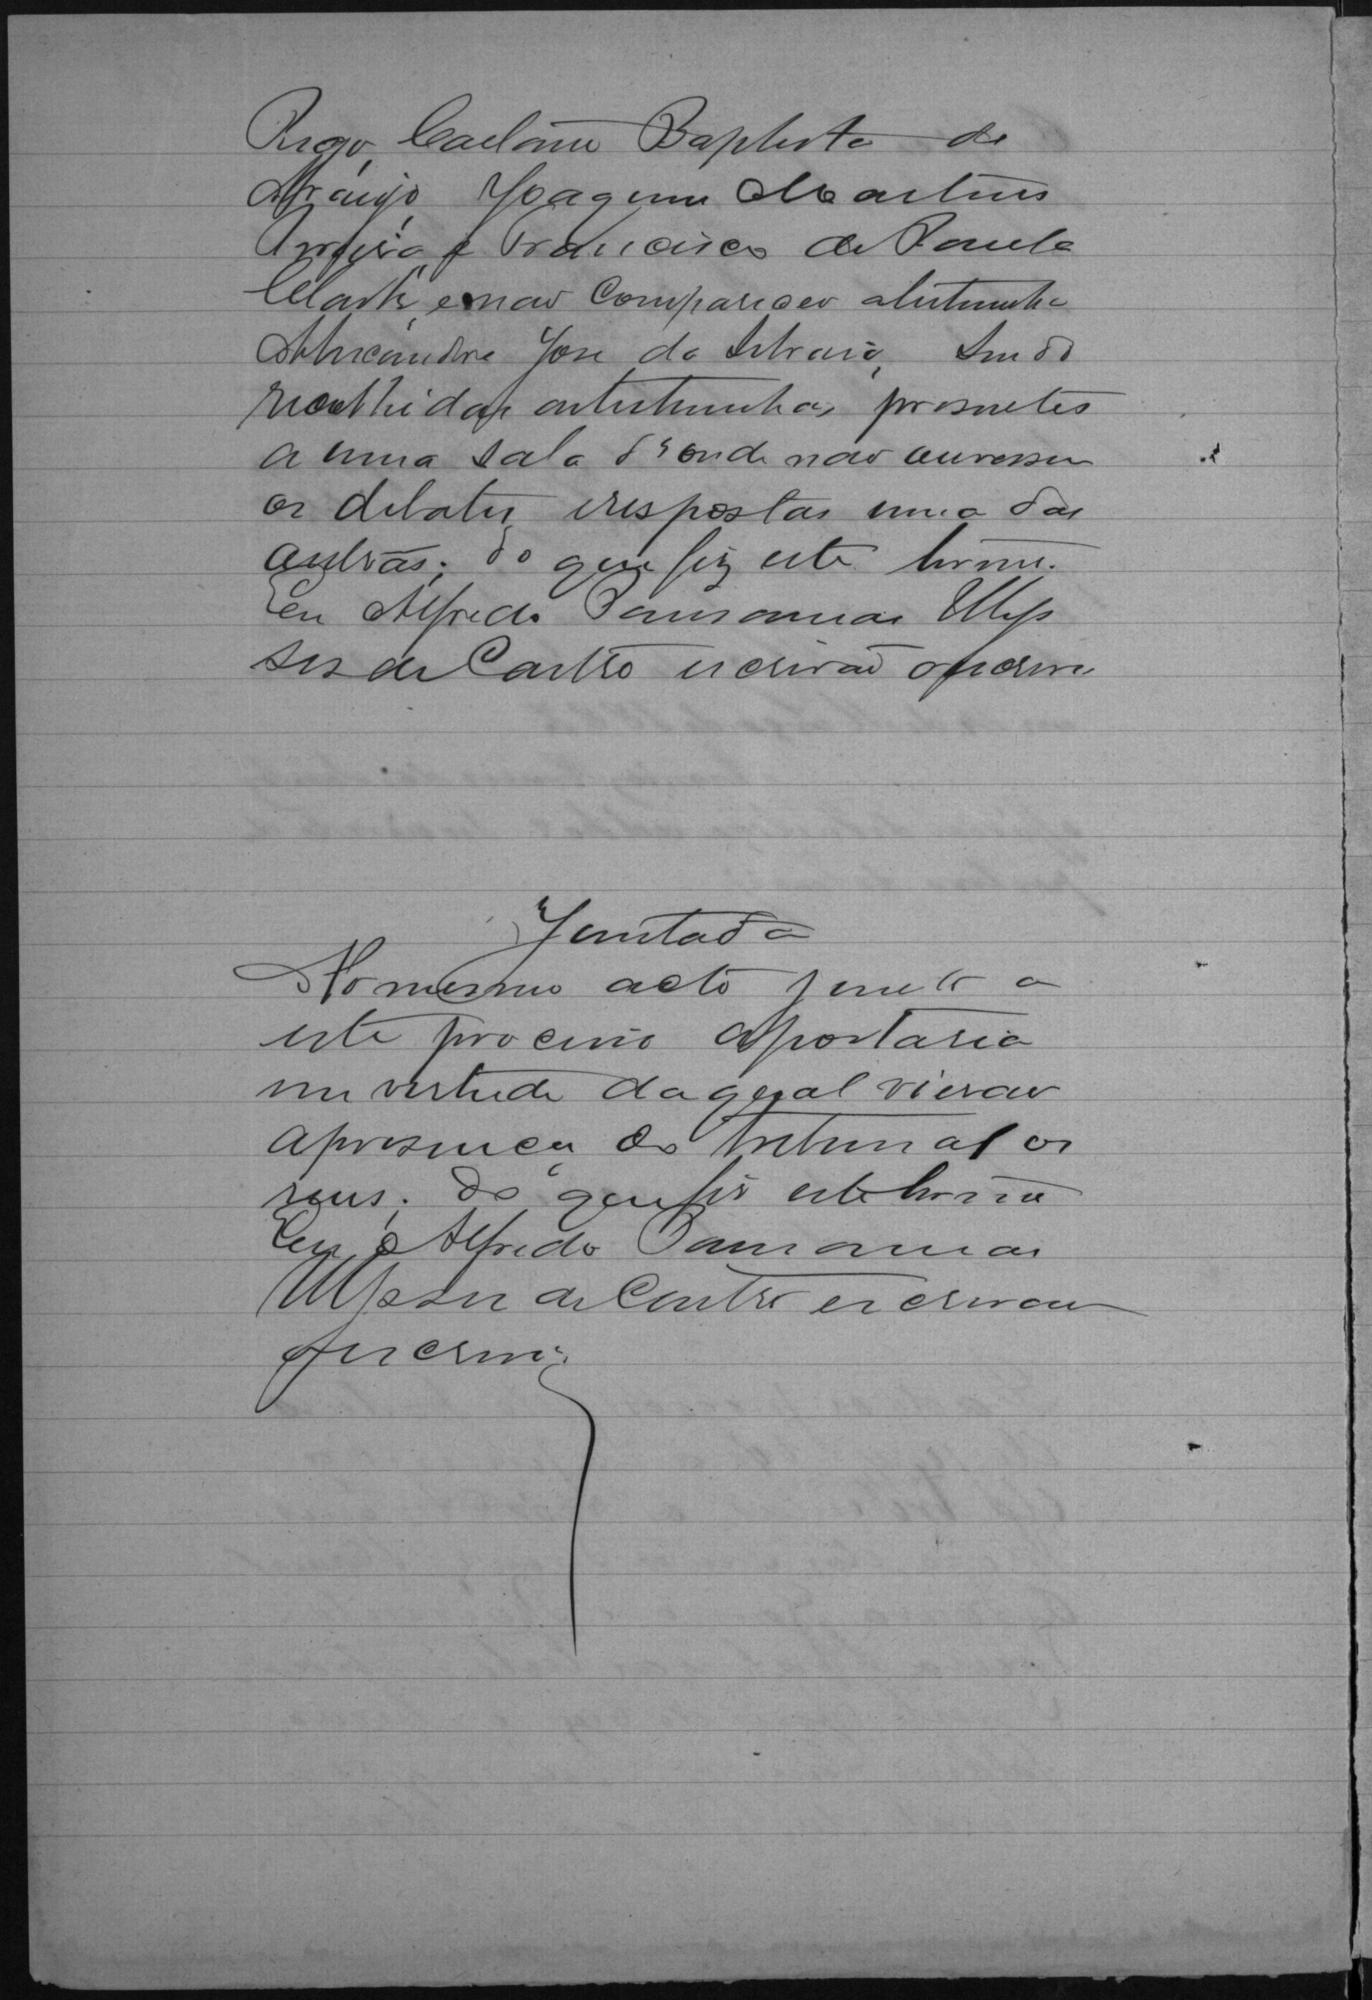 Rego, Caetano Baptista de
Araujo, Joaquim Martins
Pereira, e Francisco de Paula
e não compareceo a testimunha
Alexandre José da Silva, sendo
recolhidas as testimunhas presentes
a uma sala d'onde não ouvissem
os debates e respostas uma das
outras; do que fiz este termo.
Eu Alfredo Pausanias Ulys
ses de Castro escrivão o escrevi
Juntada
No mesmo acto junto a
este processo a portaria
em vertude da qual vierão
a presença do tribunal os
reus; do que fiz este termo
Eu Alfredo Pausanias
Ulysses de Castro escrivão
o escrevi.